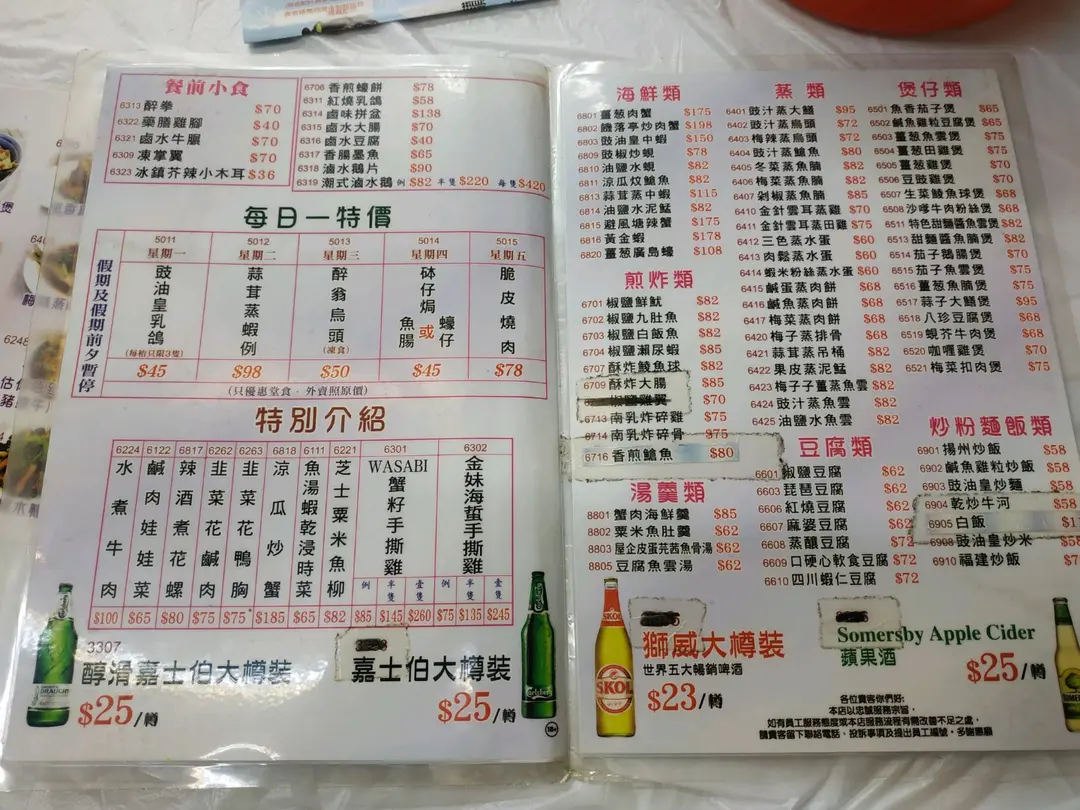 餐前小食
6313 醉拳 $70
6322 藥膳雞腳 $40
6321 鹵水牛𦟌 $70
6309 凍掌翼 $70
6323 冰鎮芥辣小木耳 $36
6706 香煎蠔餅 $78
6311 紅燒乳鴿 $58
6314 鹵味拼盆 $138
6315 鹵水大腸 $70
6316 鹵水豆腐 $40
6317 香腸墨魚 $65
6318 滷水鵝片 $90
6319 潮式滷水鵝 例 $82 半隻 $220 每隻 $420
每日一特價
假期及假期前夕暫停
5011 星期一 豉油皇乳鴿 (每枱只限3隻) $45
5012 星期二 蒜茸蒸蝦 例 $98
5013 星期三 醉翁烏頭 (凍食) $50
5014 星期四 砵仔焗魚腸 或 蠔仔 $45
5015 星期五 脆皮燒肉 $78
(只優惠堂食﹐外賣照原價)
特別介紹
6224 水煮牛肉 $100
6122 鹹肉娃娃菜 $65
6817 辣酒煮花螺 $80
6262 韭菜花鹹肉 $75
6263 韭菜花鴨胸 $75
6818 涼瓜炒蟹 $185
6111 魚湯蝦乾浸時菜 $65
6221 芝士粟米魚柳 $82
6301 WASABI 蟹籽手撕雞 例 $85 半隻 $145 壹隻 $260
6302 金妹海蜇手撕雞 例 $75 半隻 $135 壹隻 $245
3307
醇滑嘉士伯大樽裝
$25/樽
嘉士伯大樽裝
$25/樽
海鮮類
6801 薑葱肉蟹 $175
6802 鐖落亭炒肉蟹 $198
6803 豉油皇中蝦 $150
6809 豉椒炒蜆 $78
6810 油鹽水蜆 $82
6811 涼瓜炆鱠魚 $82
6813 蒜茸蒸中蝦 $115
6814 油鹽水泥鯭 $82
6815 避風塘辣蟹 $175
6816 黃金蝦 $178
6820 薑葱廣島蠔 $108
煎炸類
6701 椒鹽鮮魷 $82
6702 椒鹽九肚魚 $82
6703 椒鹽白飯魚 $82
6704 椒鹽瀨尿蝦 $85
6707 酥炸鯪魚球 $82
6709 酥炸大腸 $85
$70
6713 南乳炸碎雞 $75
6714 南乳炸碎骨 $75
6716 香煎鱠魚 $80
湯羹類
8801 蟹肉海鮮羹 $85
8802 粟米魚肚羹 $62
8803 屋企皮蛋芫茜魚骨湯 $62
8805 豆腐魚雲湯 $62
蒸類
6401 豉汁蒸大鱔 $95
6402 豉汁蒸烏頭 $72
6403 梅辣蒸烏頭 $72
6404 豉汁蒸鱠魚 $80
6405 冬菜蒸魚腩 $82
6406 梅菜蒸魚腩 $82
6407 剁椒蒸魚腩 $85
6410 金針雲耳蒸雞 $70
6411 金針雲耳蒸田雞 $75
6412 三色蒸水蛋 $60
6413 肉鬆蒸水蛋 $60
6414 蝦米粉絲蒸水蛋 $60
6415 鹹蛋蒸肉餅 $68
6416 鹹魚蒸肉餅 $68
6417 梅菜蒸肉餅 $68
6420 梅子蒸排骨 $68
6421 蒜茸蒸吊桶 $82
6422 果皮蒸泥鯭 $82
6423 梅子子薑蒸魚雲 $82
6424 豉汁蒸魚雲 $82
6425 油鹽水魚雲 $82
豆腐類
6601 椒鹽豆腐 $62
6603 琵琶豆腐 $62
6606 紅燒豆腐 $62
6607 麻婆豆腐 $62
6608 蒸釀豆腐 $72
6609 口硬心軟食豆腐 $72
6610 四川蝦仁豆腐 $72
煲仔類
6501 魚香茄子煲 $65
6502 鹹魚雞粒豆腐煲 $65
6503 薑葱魚雲煲 $75
6504 薑葱田雞煲 $75
6505 薑葱雞煲 $70
6506 豆豉雞煲 $70
6507 生菜鯪魚球煲 $68
6508 沙嗲牛肉粉絲煲 $68
6511 特色甜麵醬魚雲煲 $82
6513 甜麵醬魚腩煲 $82
6514 茄子鵝腸煲 $70
6515 茄子魚雲煲 $75
6516 薑葱魚腩煲 $75
6517 蒜子大鱔煲 $95
6518 八珍豆腐煲 $68
6519 蜆芥牛肉煲 $68
6520 咖喱雞煲 $70
6521 梅菜扣肉煲 $75
炒粉麵飯類
6901 揚州炒飯 $58
6902 鹹魚雞粒炒飯 $58
6903 豉油皇炒麵 $58
6904 乾炒牛河 $58
6905 白飯
6908 豉油皇炒米
6910 福建炒飯
SKOL
獅威大樽裝
世界五大暢銷啤酒
$23/樽
Somersby Apple Cider
蘋果酒
$25/樽
各位貴客你們好:
本店以忠誠服務宗旨，
如有員工服務態度或本店服務流程有需改善不足之處，
請貴客留下聯絡電話、投訴事項及提出員工編號，多謝惠顧